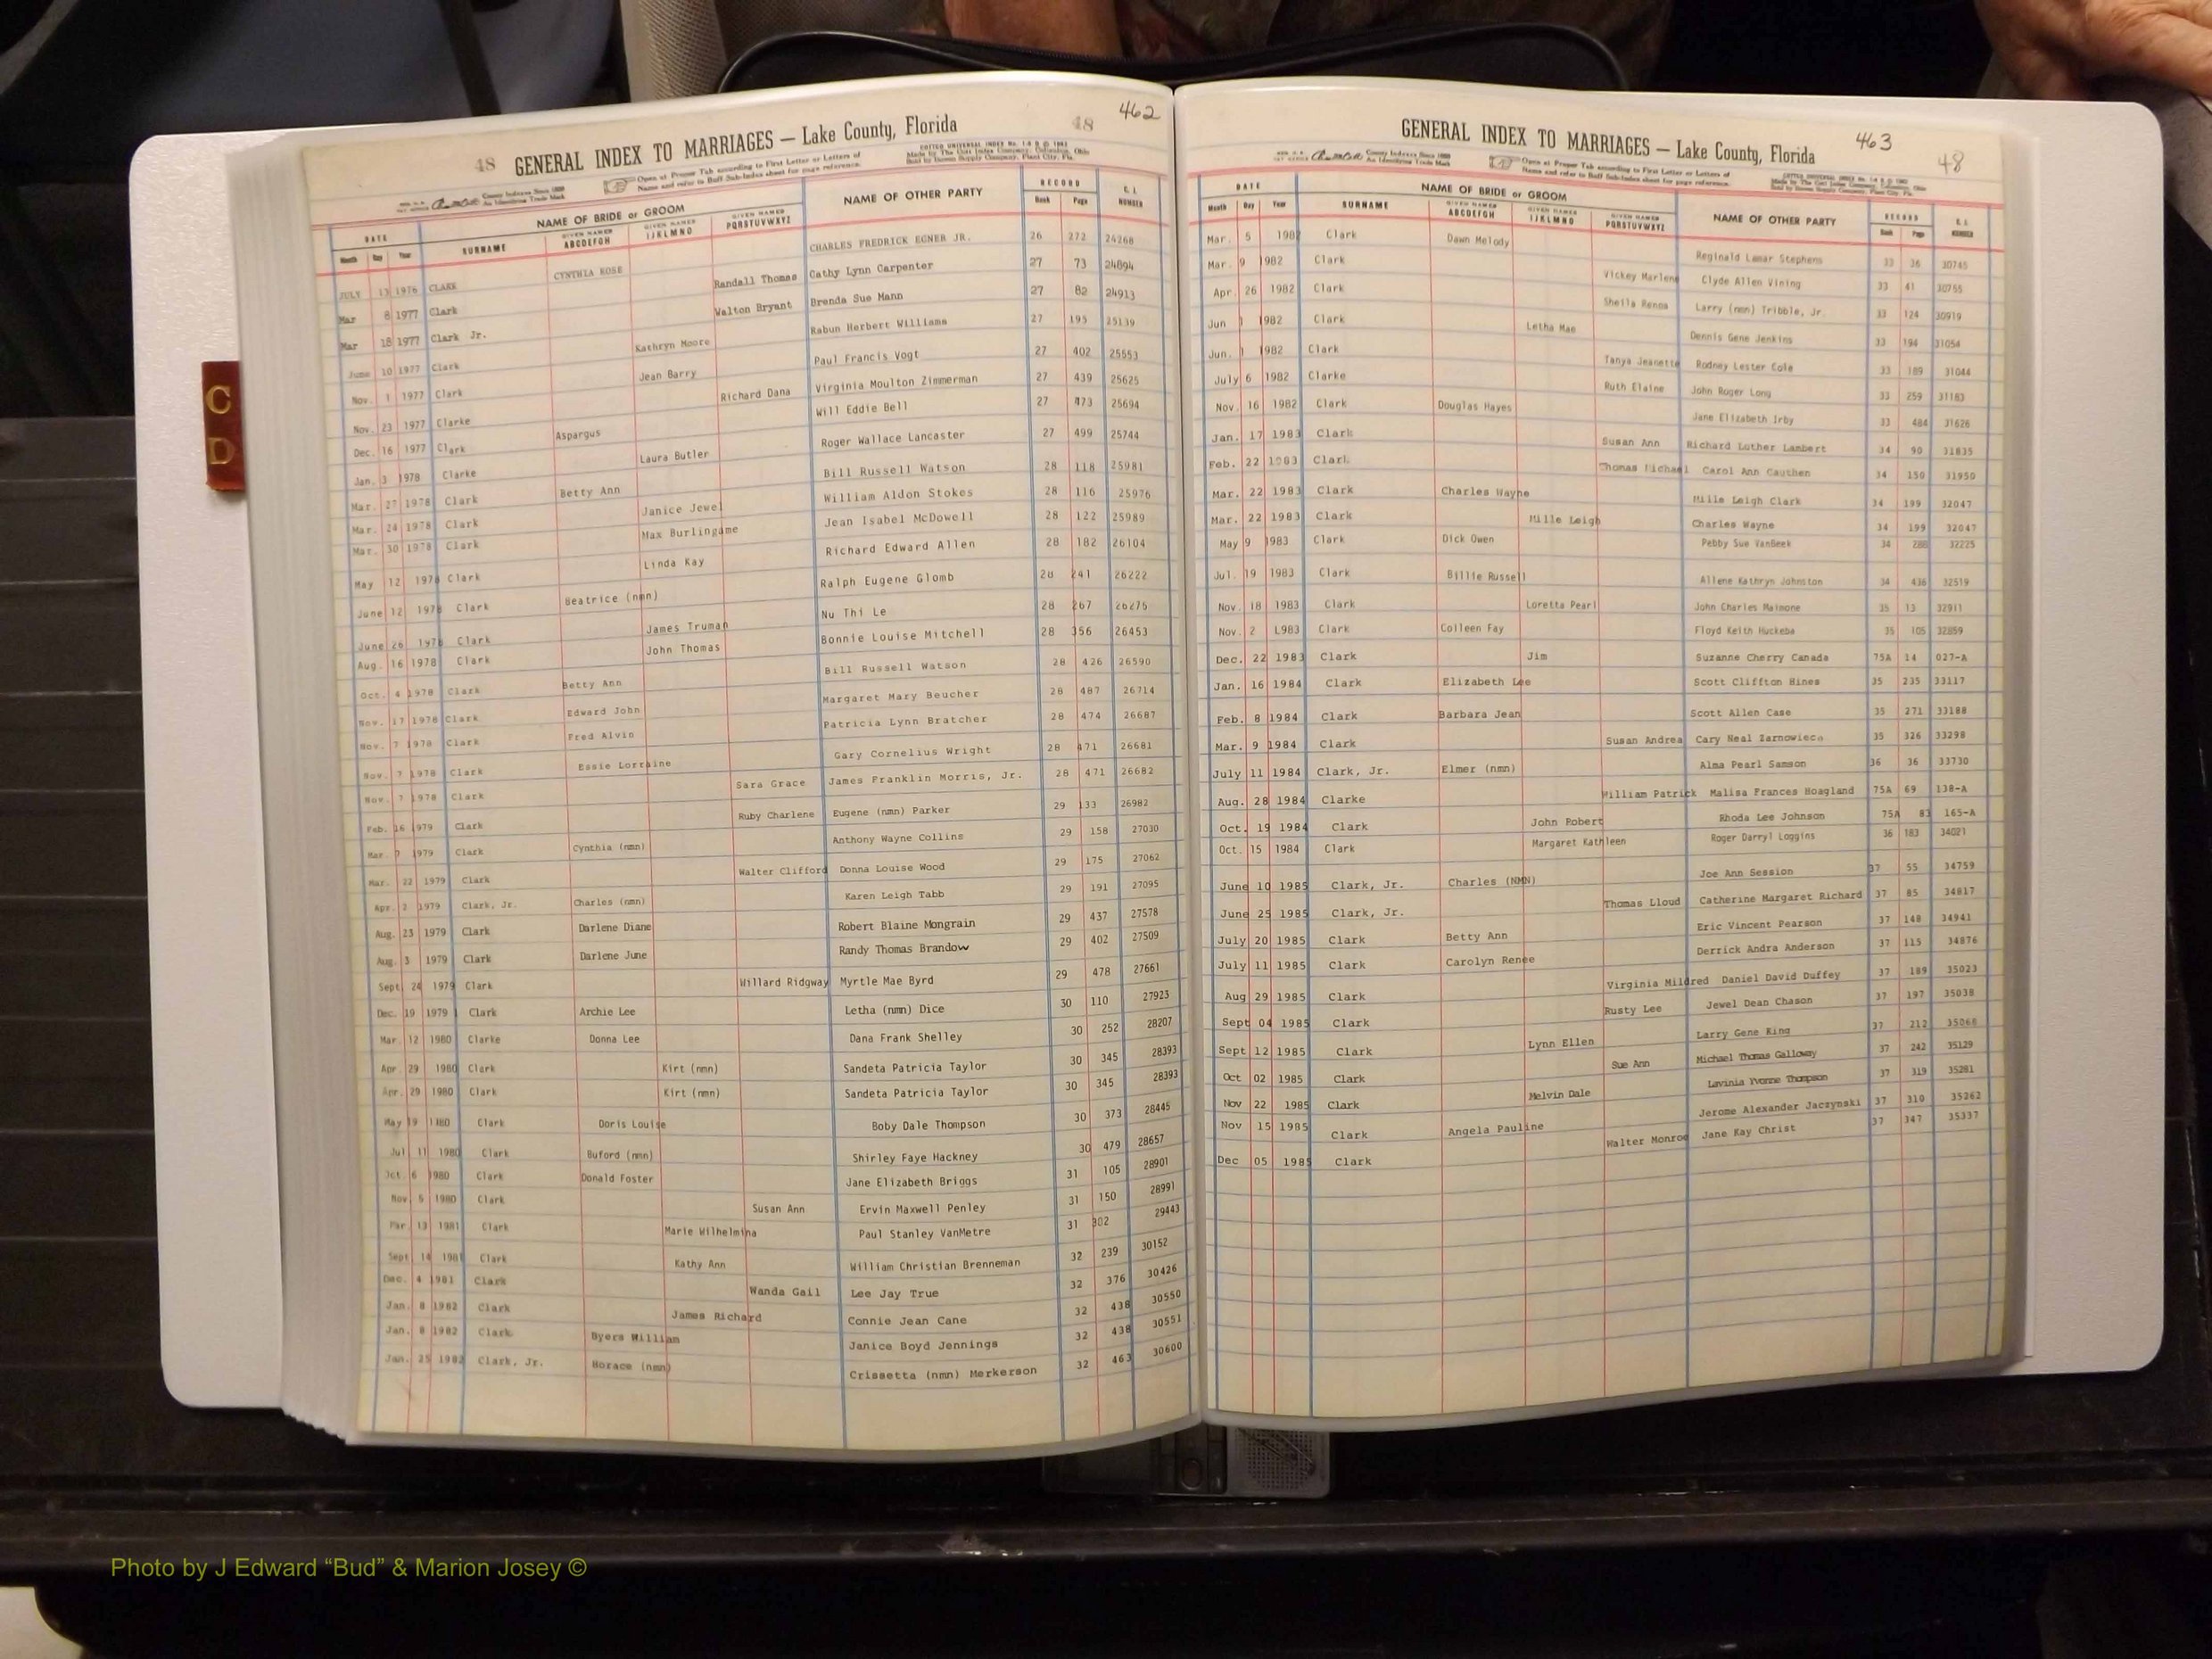 462
48 GENERAL INDEX TO MARRIAGES — Lake County, Florida 48
County Indexes Since 1888 An Identifying Trade Mark
Open at Proper Tab according to First Letter or Letters of
Name and refer to Buff Sub-Index sheet for page reference.
DATE NAME OF BRIDE or GROOM NAME OF OTHER PARTY RECORD C. L. NUMBER
Month Day Year SURNAME GIVEN NAMES ABCDEFGH GIVEN NAMES IJKLMNO GIVEN NAMES PQRSTUVWXYZ Book Page
JULY 13 1976 CLARK CYNTHIA ROSE CHARLES FREDRICK EGNER JR. 26 272 24268
Mar 8 1977 Clark Randall Thomas Cathy Lynn Carpenter 27 73 24894
Mar 18 1977 Clark Jr. Walton Bryant Brenda Sue Mann 27 82 24913
June 10 1977 Clark Kathryn Moore Rabun Herbert Williams 27 195 25139
Nov. 1 1977 Clark Jean Barry Paul Francis Vogt 27 402 25553
Nov. 23 1977 Clarke Richard Dana Virginia Moulton Zimmerman 27 439 25625
Dec. 16 1977 Clark Aspargus Will Eddie Bell 27 473 25694
Jan. 3 1978 Clarke Laura Butler Roger Wallace Lancaster 27 499 25744
Mar. 27 1978 Clark Betty Ann Bill Russell Watson 28 118 25981
Mar. 24 1978 Clark Janice Jewel William Aldon Stokes 28 116 25976
Mar. 30 1978 Clark Max Burlingame Jean Isabel McDowell 28 122 25989
May 12 1978 Clark Linda Kay Richard Edward Allen 28 182 26104
June 12 1978 Clark Beatrice (nmn) Ralph Eugene Glomb 28 241 26222
June 26 1978 Clark James Truman Nu Thi Le 28 267 26275
Aug. 16 1978 Clark John Thomas Bonnie Louise Mitchell 28 356 26453
Oct. 4 1978 Clark Betty Ann Bill Russell Watson 28 426 26590
Nov. 17 1978 Clark Edward John Margaret Mary Beucher 28 487 26714
Nov. 7 1978 Clark Fred Alvin Patricia Lynn Bratcher 28 474 26687
Nov. 7 1978 Clark Essie Lorraine Gary Cornelius Wright 28 471 26681
Nov. 7 1978 Clark Sara Grace James Franklin Morris, Jr. 28 471 26682
Feb. 16 1979 Clark Ruby Charlene Eugene (nmn) Parker 29 133 26982
Mar. 7 1979 Clark Cynthia (nmn) Anthony Wayne Collins 29 158 27030
Mar. 22 1979 Clark Walter Clifford Donna Louise Wood 29 175 27062
Apr. 2 1979 Clark, Jr. Charles (nmn) Karen Leigh Tabb 29 191 27095
Aug. 23 1979 Clark Darlene Diane Robert Blaine Mongrain 29 437 27578
Aug. 3 1979 Clark Darlene June Randy Thomas Brandow 29 402 27509
Sept 24 1979 Clark Willard Ridgway Myrtle Mae Byrd 29 478 27661
Dec. 19 1979 Clark Archie Lee Letha (nmn) Dice 30 110 27923
Mar. 12 1980 Clarke Donna Lee Dana Frank Shelley 30 252 28207
Apr 29 1980 Clark Kirt (nmn) Sandeta Patricia Taylor 30 345 28393
Apr. 29 1980 Clark Kirt (nmn) Sandeta Patricia Taylor 30 345 28393
May 19 1980 Clark Doris Louise Boby Dale Thompson 30 373 28445
Jul 11 1980 Clark Buford (nmn) Shirley Faye Hackney 30 479 28657
Oct. 6 1980 Clark Donald Foster Jane Elizabeth Briggs 31 105 28901
Nov. 5 1980 Clark Susan Ann Ervin Maxwell Penley 31 150 28991
Mar. 13 1981 Clark Marie Wilhelmina Paul Stanley VanMetre 31 302 29443
Sept. 14 1981 Clark Kathy Ann William Christian Brenneman 32 239 30152
Dec. 4 1981 Clark Wanda Gail Lee Jay True 32 376 30426
Jan. 8 1982 Clark James Richard Connie Jean Cane 32 438 30550
Jan. 8 1982 Clark Byers William Janice Boyd Jennings 32 438 30551
Jan. 25 1982 Clark, Jr. Horace (nmn) Crissetta (nmn) Merkerson 32 463 30600
463
GENERAL INDEX TO MARRIAGES — Lake County, Florida 48
County Indexes Since 1888 An Identifying Trade Mark
Open at Proper Tab according to First Letter or Letters of
Name and refer to Buff Sub-Index sheet for page reference.
DATE NAME OF BRIDE or GROOM NAME OF OTHER PARTY RECORD C. L. NUMBER
Month Day Year SURNAME GIVEN NAMES ABCDEFGH GIVEN NAMES IJKLMNO GIVEN NAMES PQRSTUVWXYZ Book Page
Mar. 5 198 Clark Dawn Melody Reginald Lamar Stephens 33 36 30745
Mar. 9 1982 Clark Vickey Marlene Clyde Allen Vining 33 41 30755
Apr. 26 1982 Clark Sheila Renea Larry (nmn) Tribble, Jr. 33 124 30919
Jun 1 1982 Clark Letha Mae Dennis Gene Jenkins 33 194 31054
Jun. 1 1982 Clark Tanya Jeanette Rodney Lester Cole 33 189 31044
July 6 1982 Clarke Ruth Elaine John Roger Long 33 259 31183
Nov. 16 1982 Clark Douglas Hayes Jane Elizabeth Irby 33 484 31626
Jan. 17 1983 Clark Susan Ann Richard Luther Lambert 34 90 31835
Feb. 22 1983 Clark Thomas Michael Carol Ann Cauthen 34 150 31950
Mar. 22 1983 Clark Charles Wayne Mille Leigh Clark 34 199 32047
Mar. 22 1983 Clark Mille Leigh Charles Wayne 34 199 32047
May 9 1983 Clark Dick Owen Pebby Sue VanBeek 34 288 32225
Jul. 19 1983 Clark Billie Russell Allene Kathryn Johnston 34 436 32519
Nov. 18 1983 Clark Loretta Pearl John Charles Maimone 35 13 32911
Nov. 2 L983 Clark Colleen Fay Floyd Keith Huckeba 35 105 32859
Dec. 22 1983 Clark Jim Suzanne Cherry Canada 75A 14 027-A
Jan. 16 1984 Clark Elizabeth Lee Scott Cliffton Hines 35 235 33117
Feb. 8 1984 Clark Barbara Jean Scott Allen Case 35 271 33188
Mar. 9 1984 Clark Susan Andrea Cary Neal Zarnowiec 35 326 33298
July 11 1984 Clark, Jr. Elmer (nmn) Alma Pearl Samson 36 36 33730
Aug. 28 1984 Clarke William Patrick Malisa Frances Hoagland 75A 69 138-A
Oct. 19 1984 Clark John Robert Rhoda Lee Johnson 75A 83 165-A
Oct. 15 1984 Clark Margaret Kathleen Roger Darryl Loggins 36 183 34021
June 10 1985 Clark, Jr. Charles (NMN) Joe Ann Session 37 55 34759
June 25 1985 Clark, Jr. Thomas Lloud Catherine Margaret Richard 37 85 34817
July 20 1985 Clark Betty Ann Eric Vincent Pearson 37 148 34941
July 11 1985 Clark Carolyn Renee Derrick Andra Anderson 37 115 34876
Aug 29 1985 Clark Virginia Mildred Daniel David Duffey 37 189 35023
Sept 04 1985 Clark Rusty Lee Jewel Dean Chason 37 197 35038
Sept 12 1985 Clark Lynn Ellen Larry Gene King 37 212 35068
Oct 02 1985 Clark Sue Ann Michael Thomas Galloway 37 242 35129
Nov 22 1985 Clark Melvin Dale Lavinia Yvonne Thompson 37 319 35281
Nov 15 1985 Clark Angela Pauline Jerome Alexander Jaczynski 37 310 35262
Dec 05 1985 Clark Walter Monroe Jane Kay Christ 37 347 35337
C
D
Photo by J Edward “Bud” & Marion Josey ©